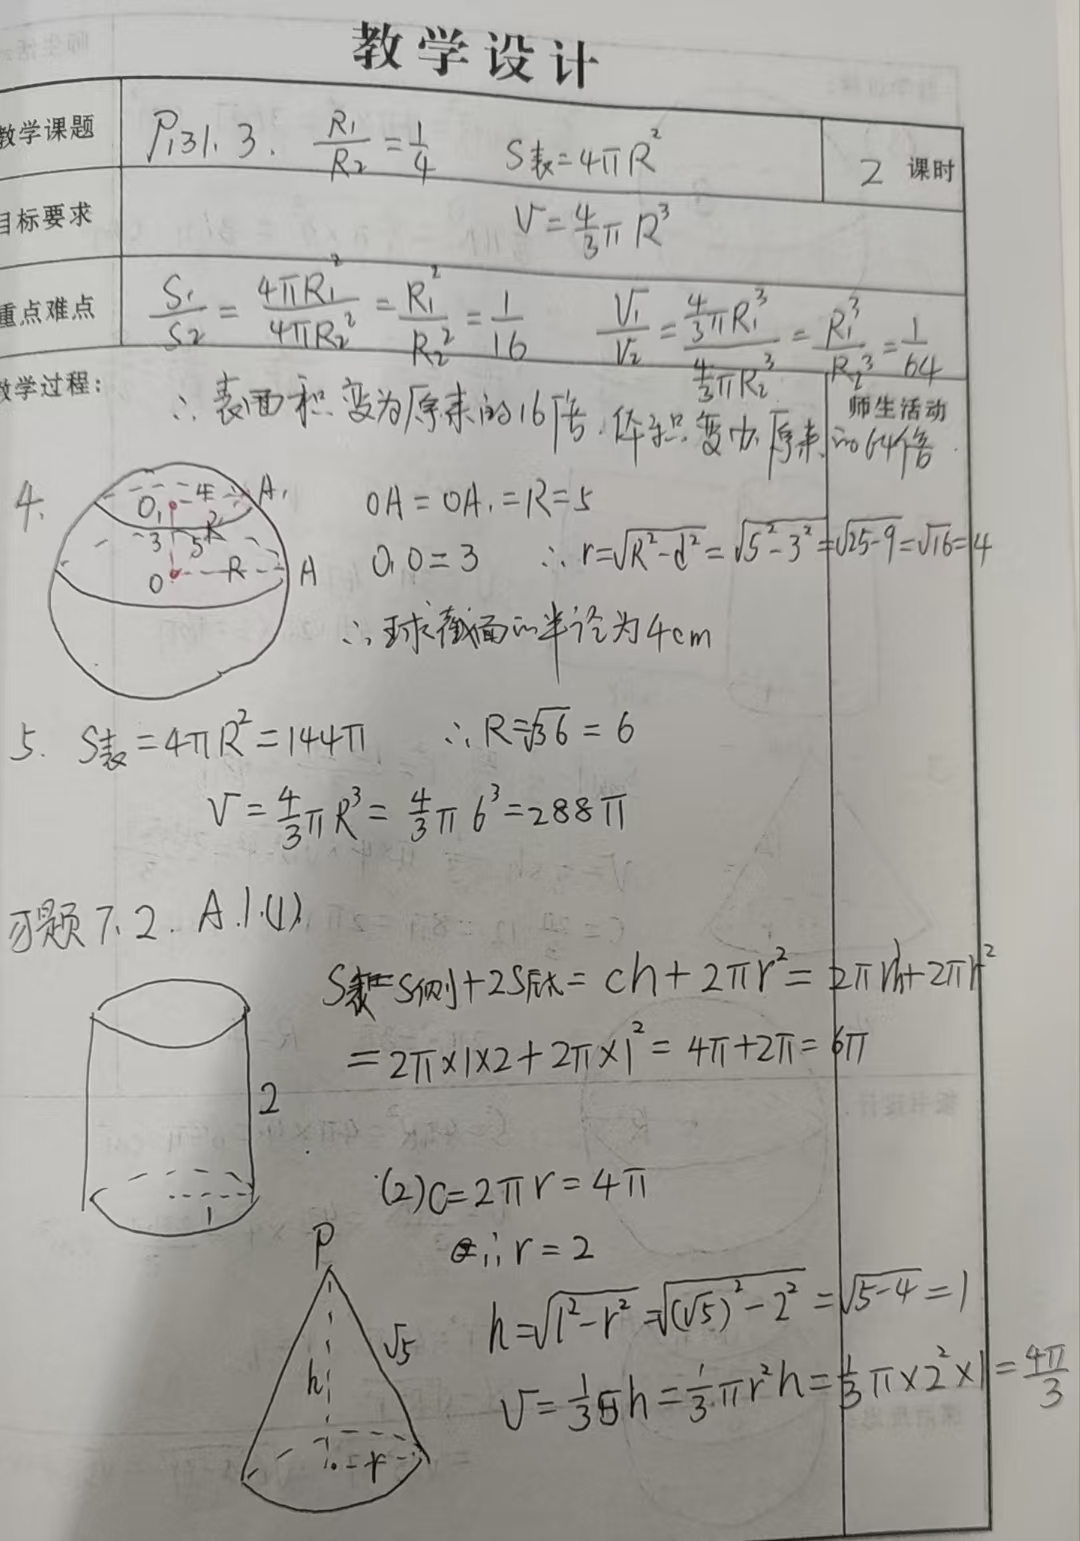 教学设计
教学课题 P131.3. R₁/R₂=1/4 S表=4πR² 2 课时
目标要求 V=4/3πR³
重点难点 S₁/S₂=4πR₁²/4πR₂²=R₁²/R₂²=1/16 V₁/V₂=4/3πR₁³/4/3πR₂³=R₁³/R₂³=1/64
教学过程: 师生活动
∴表面积变为原来的16倍.体积变为原来的64倍.
4. O₁ 4 A₁ OA=OA₁=R=5
3 5 R O₁O=3 ∴r=√R²-d²=√5²-3²=√25-9=√16=4
O R A
∴球截面的半径为4cm
5. S表=4πR²=144π ∴R=√36=6
V=4/3πR³=4/3π6³=288π
习题7.2. A.1.(1)
S表=S侧+2S底=ch+2πr²=2πrh+2πr²
=2π×1×2+2π×1²=4π+2π=6π
2
1
(2)C=2πr=4π
∴r=2
P
h=√l²-r²=√(√5)²-2²=√5-4=1
√5
h
V=1/3 h=1/3πr²h=1/3π×2²×1=4π/3
r